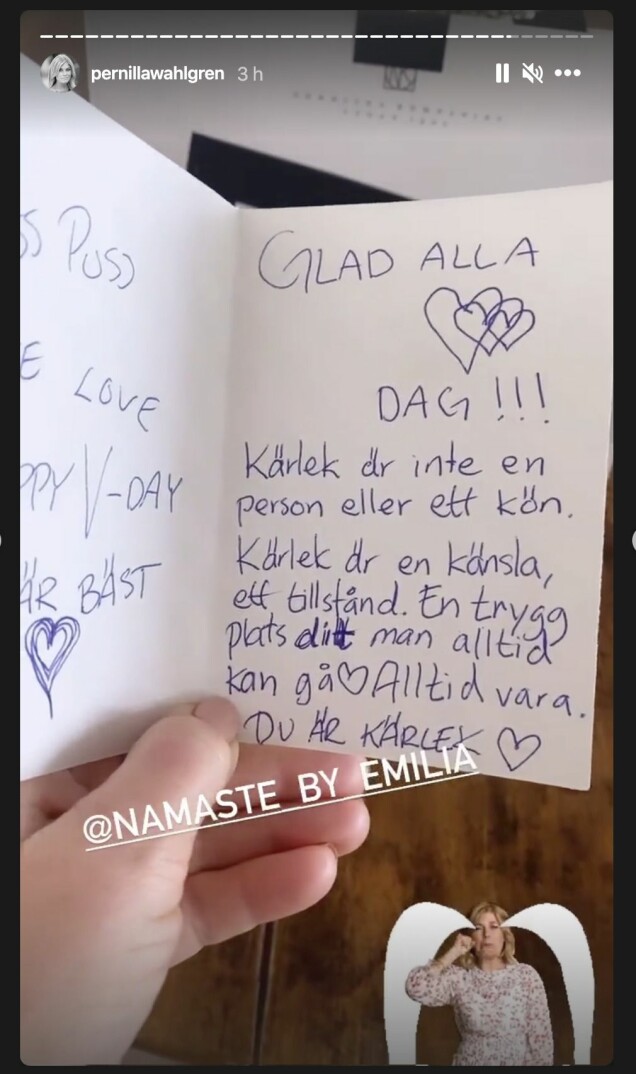 pernillawahlgren 3 h
PUSS
LOVE
V-DAY
ÄR BÄST
GLAD ALLA
DAG !!!
Kärlek är inte en
person eller ett kön.
Kärlek är en känsla,
ett tillstånd. En trygg
plats ditt man alltid
kan gå♡Alltid vara.
DU ÄR KÄRLEK ♡
@NAMASTE BY EMILIA